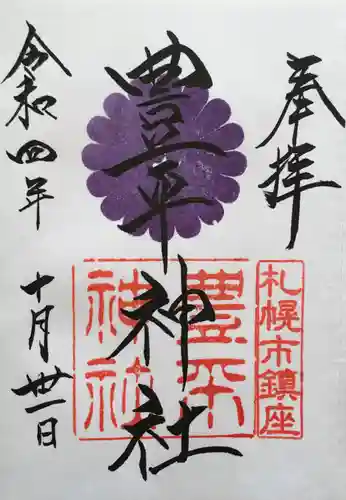 奉拝
豊平神社
札幌市鎮座
豊平
神社
令和四年
十月卅一日